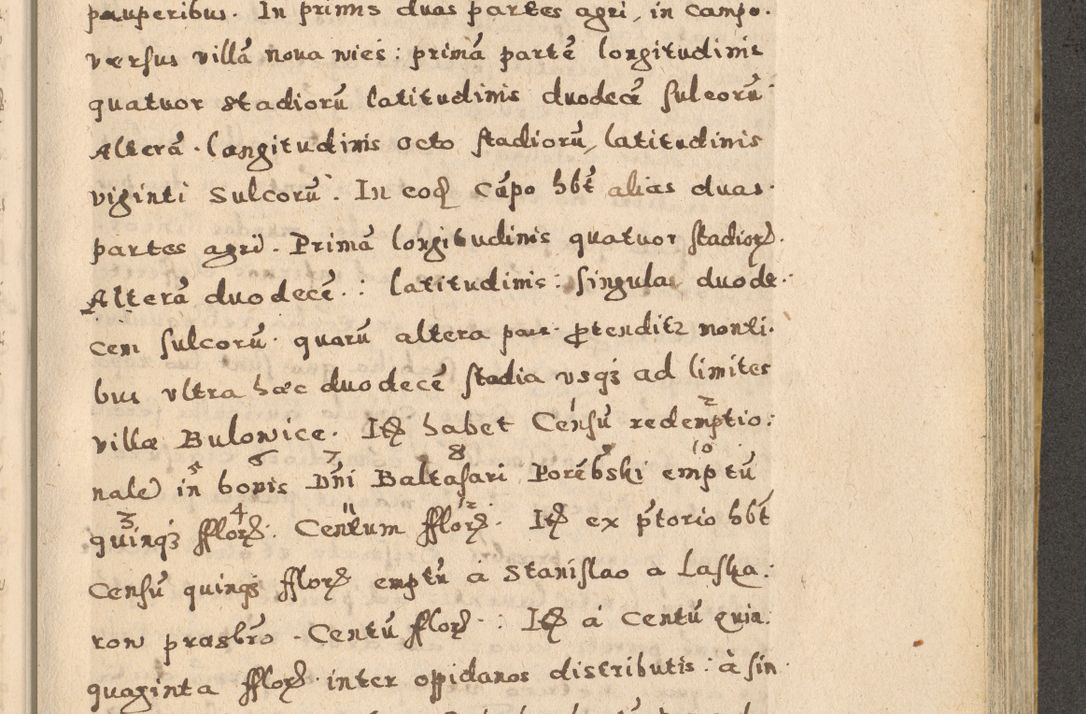 pauperibus. In primis duas partes agri, in campo.
versus villā noua wies: primā partē longitudinis
quatuor stadiorū latitudinis duodecē sulcorū
Alterā. longitudinis octo stadiorū, latitudinis
viginti Sulcorū. In eoq̃ cāpo hbt̄ alias duas.
partes agri. Primā longitudinis quatuor stadiorꝝ.
Alterā duodecē.: latitudinis: singula duode.
cem sulcorū. quarū altera pars. ꝓtenditz monti.
bus vltra hæc duodecē stadia vsqꝫ ad limites
villæ Bulowice. Itꝫ habet Censū redemptio:
nalē in bonis Dn̄i Baltasari Porēbski emptū
quinqꝫ fflorꝝ. Centum fflorꝝ. Itꝫ ex p̄torio hbt̄
Censū quinqꝫ fflorꝝ emptū à Stanislao a Laska.
ron prasbr̄o. Centū fflorꝝ: Itꝫ á Centū quin.
quaginta fflorꝝ. inter oppidanos distributis: à sin.